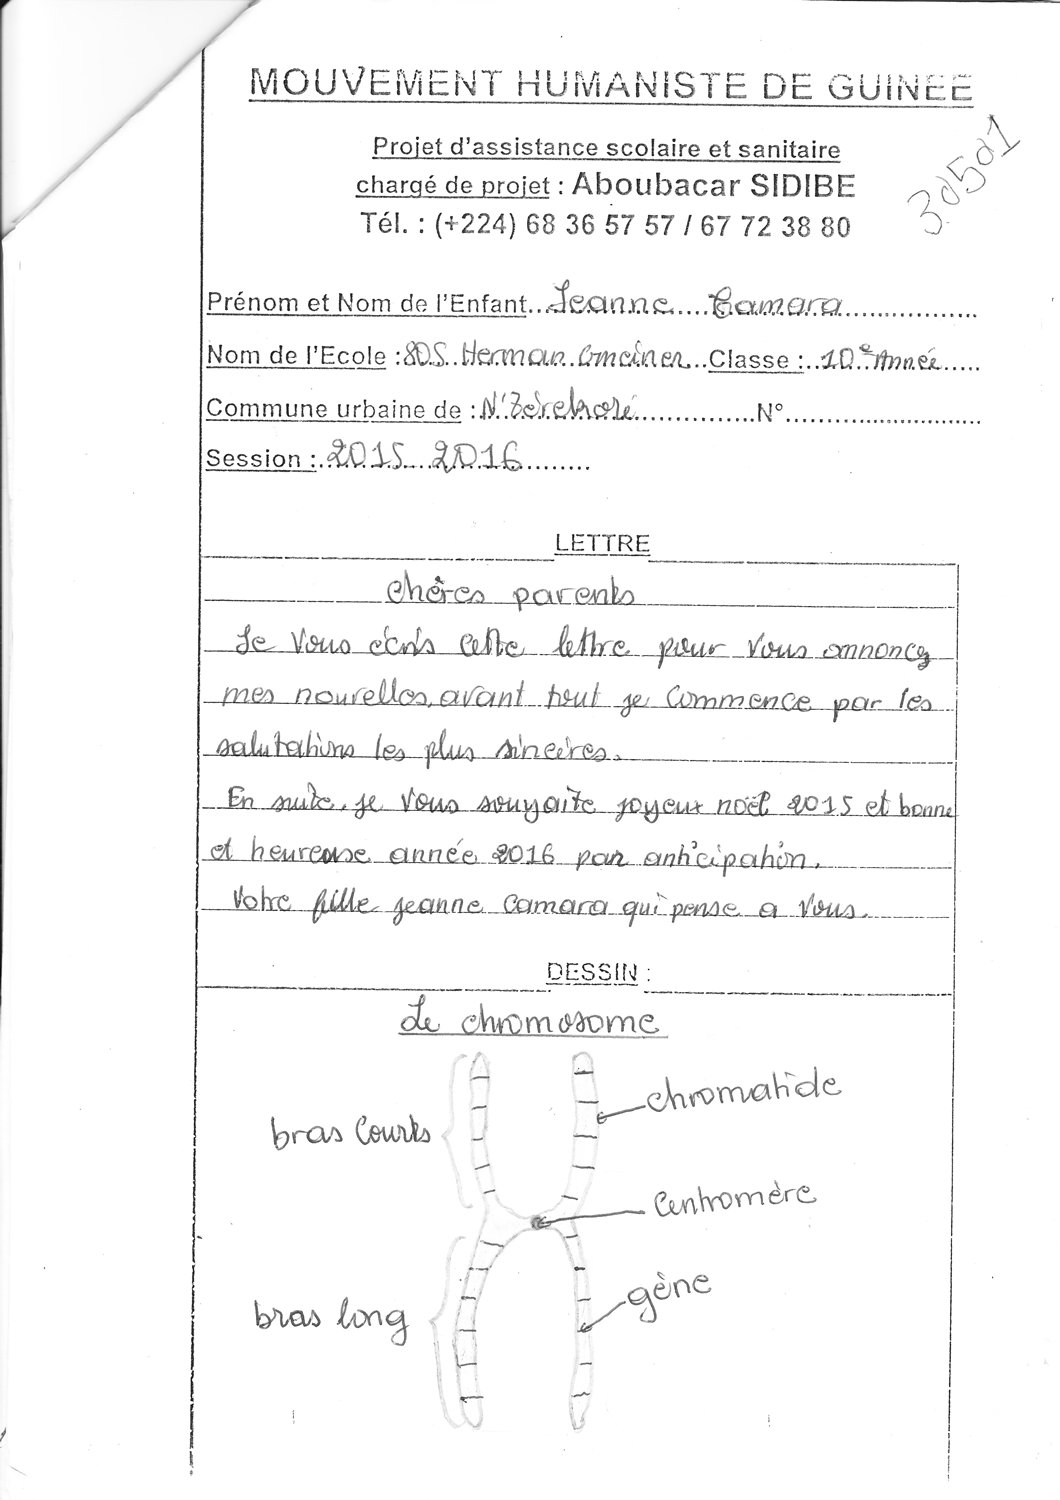 MOUVEMENT HUMANISTE DE GUINEE
Projet d'assistance scolaire et sanitaire
chargé de projet : Aboubacar SIDIBE
Tél. : (+224) 68 36 57 57 / 67 72 38 80
Prénom et Nom de l'Enfant...Jeanne....Camara.................
Nom de l'Ecole :SOS..Herman.Gmeiner..Classe :..10e Année.....
Commune urbaine de :N'Zérekoré...............N°...........................
Session :.2015...2016........
LETTRE
chères parents
Je vous écris cette lettre pour vous annoncez
mes nouvelles, avant tout je commence par les
salutations les plus sincères.
En suite, je vous souyaite joyeux noël 2015 et bonne
et heureuse année 2016 par anticipation.
Votre fille jeanne camara qui pense a vous.
DESSIN :
Le chromosome
chromatide
bras courts
Centromère
gène
bras long